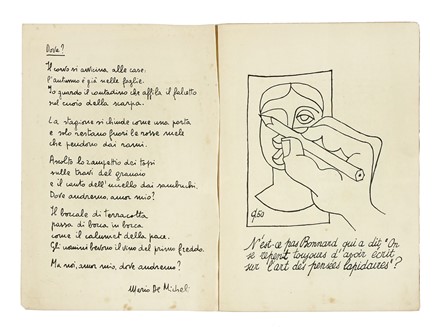 Dove?
Il corvo si avvicina alle case:
l'autunno è già nelle foglie.
Io guardo il contadino che affila il falcetto
sul cuoio della scarpa.
La stagione si chiude come una porta
e solo restano fuori le rosse mele
che pendono dai rami.
Ascolto lo zampettio dei topi
sulle travi del granaio
e il canto dell'uccello dai sambuchi.
Dove andremo, amor mio?
Il boccale di terracotta
passa di bocca in bocca
come il calumet della pace.
Gli uomini bevono il vino del primo freddo.
Ma noi, amor mio, dove andremo?
Mario De Micheli
N'est-ce pas Bonnard qui a dit: "On
se repent toujours d'avoir écrit
sur l'art des pensées lapidaires"?